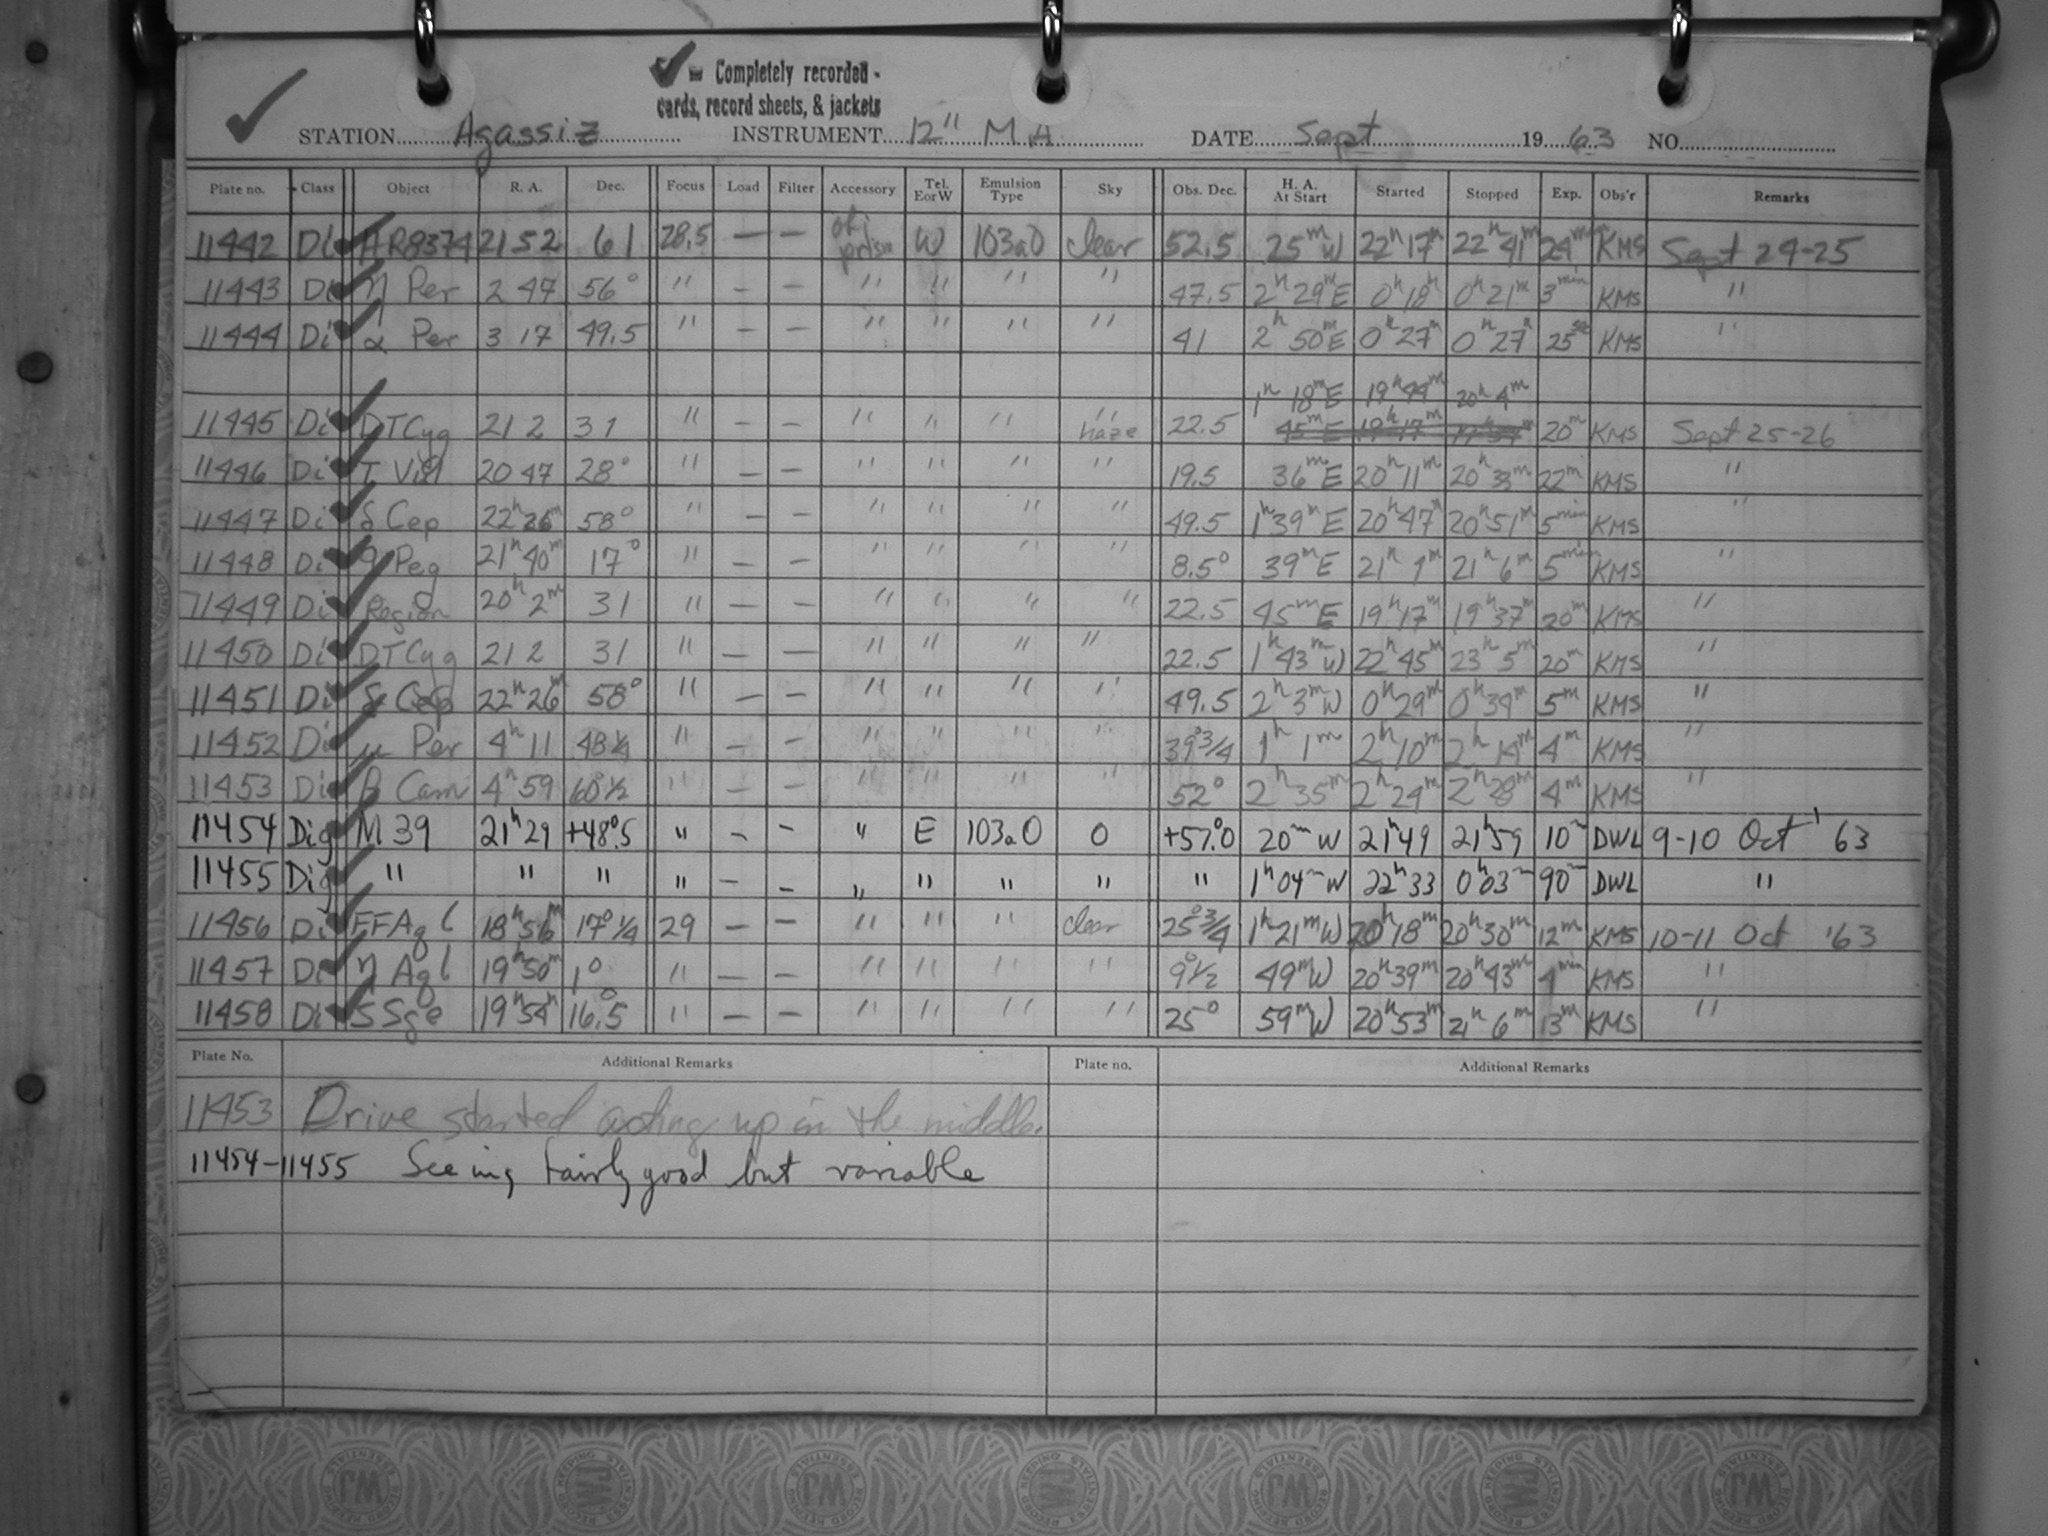 ✓ = Completely recorded -
cards, record sheets, & jackets
STATION Agassiz INSTRUMENT 12" MA DATE Sept 1963 NO.
Plate no. Class Object R. A. Dec. Focus Load Filter Accessory Tel. E or W Emulsion Type Sky Obs. Dec. H. A. At Start Started Stopped Exp. Obs'r Remarks
11442 Di HR8374 21 52 61 28.5 — — obj prism W 103aO clear 52.5 25m W 22h 17m 22h 41m 24m KMS Sept 24-25
11443 Di η Per 2 47 56° " — — " " " " 47.5 2h 29m E 0h 18m 0h 21m 3min KMS "
11444 Di α Per 3 17 49.5 " — — " " " " 41 2h 50m E 0h 27m 0h 27m 25sec KMS "
1h 18m E 19h 44m 20h 4m
11445 Di DT Cyg 21 2 31 " — — " " " " haze 22.5 45m E 19h 17m 19h 37m 20m KMS Sept 25-26
11446 Di T Vul 20 47 28° " — — " " " " 19.5 36m E 20h 11m 20h 33m 22m KMS "
11447 Di δ Cep 22h 26m 58° " — — " " " " 49.5 1h 39m E 20h 47m 20h 51m 5min KMS "
11448 Di 9 Peg 21h 40m 17° " — — " " " " 8.5° 39m E 21h 1m 21h 6m 5min KMS "
11449 Di Region 20h 2m 31 " — — " " " " 22.5 45m E 19h 17m 19h 37m 20m KMS "
11450 Di DT Cyg 21 2 31 " — — " " " " 22.5 1h 43m W 22h 45m 23h 5m 20m KMS "
11451 Di δ Cep 22h 26m 58° " — — " " " " 49.5 2h 3m W 0h 29m 0h 34m 5m KMS "
11452 Di μ Per 4h 11 48 1/4 " — — " " " " 39° 3/4 1h 1m 2h 10m 2h 14m 4m KMS "
11453 Di β Cam 4h 59 60° 1/2 " — — " " " " 52° 2h 35m 2h 24m 2h 28m 4m KMS "
11454 Dig M 39 21h 29 +48°.5 " — — " E 103aO 0 +57°.0 20m W 21h 49 21h 59 10m DWL 9-10 Oct '63
11455 Dig " " " " — — " " " " " 1h 04m W 22h 33 0h 03m 90m DWL "
11456 Di FF Aql 18h 56m 17° 1/4 29 — — " " " clear 25° 3/4 1h 21m W 20h 18m 20h 30m 12m KMS 10-11 Oct '63
11457 Di η Aql 19h 50m 1° " — — " " " " 9° 1/2 49m W 20h 39m 20h 43m 4min KMS "
11458 Di S Sge 19h 54m 16.°5 " — — " " " " 25° 59m W 20h 53m 21h 6m 13m KMS "
Plate No. Additional Remarks Plate no. Additional Remarks
11453 Drive started acting up in the middle.
11454-11455 Seeing fairly good but variable